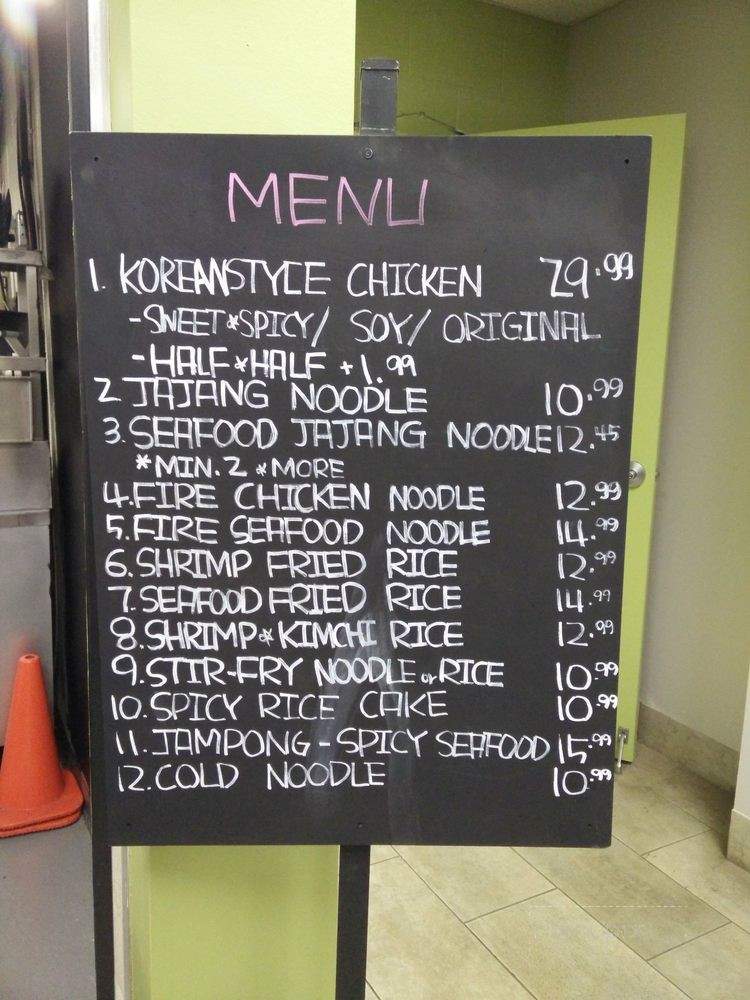 MENU
1. KOREANSTYLE CHICKEN 29.99
-SWEET*SPICY/ SOY/ ORIGINAL
-HALF*HALF +1.99
2 JAJANG NOODLE 10.99
3. SEAFOOD JAJANG NOODLE 12.45
*MIN.2 *MORE
4. FIRE CHICKEN NOODLE 12.99
5. FIRE SEAFOOD NOODLE 14.99
6. SHRIMP FRIED RICE 12.99
7. SEAFOOD FRIED RICE 14.99
8. SHRIMP*KIMCHI RICE 12.99
9. STIR-FRY NOODLE or RICE 10.99
10. SPICY RICE CAKE 10.99
11. JAMPONG-SPICY SEAFOOD 15.99
12. COLD NOODLE 10.99